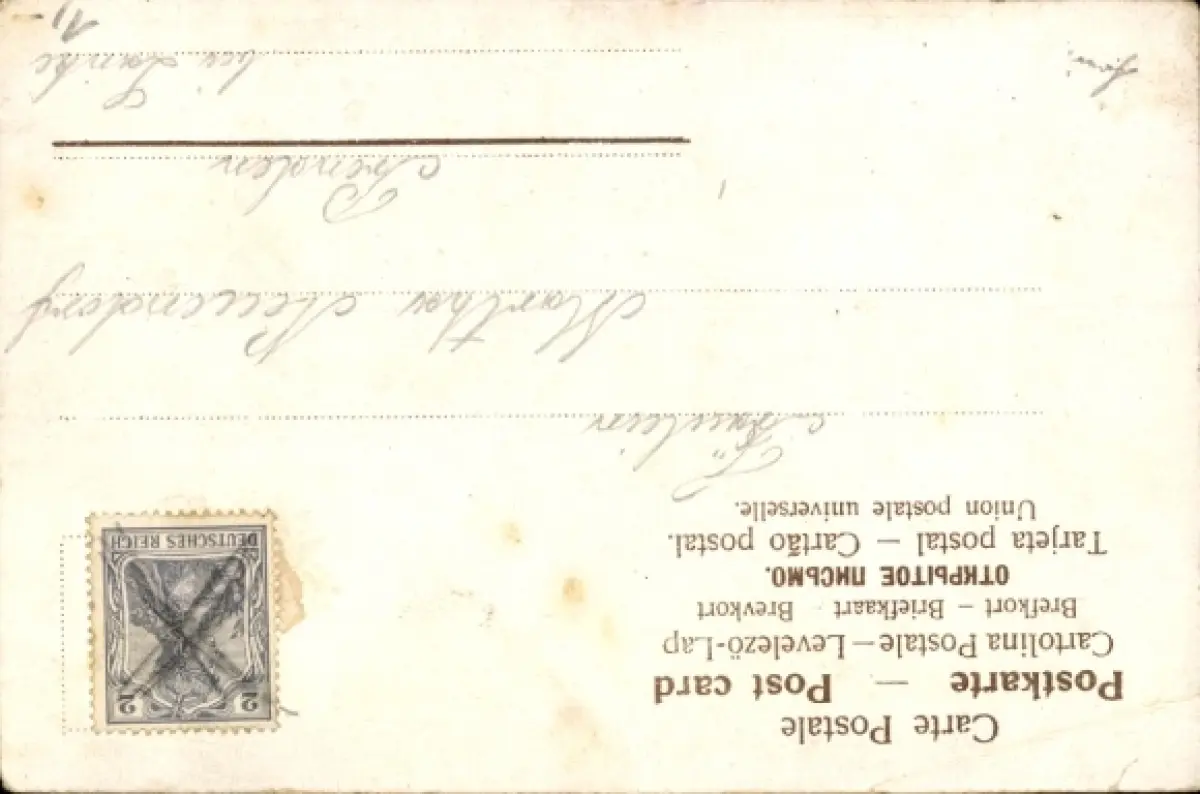 Carte Postale
Postkarte — Post card
Cartolina Postale — Levelező-Lap
Brefkort — Briefkaart Brevkort
ОТКРЫТОЕ ПИСЬМО.
Tarjeta postal — Cartão postal.
Union postale universelle.
2 2
DEUTSCHES REICH
Fräulein
Martha Neuendorf
Prenden
bei Lanke